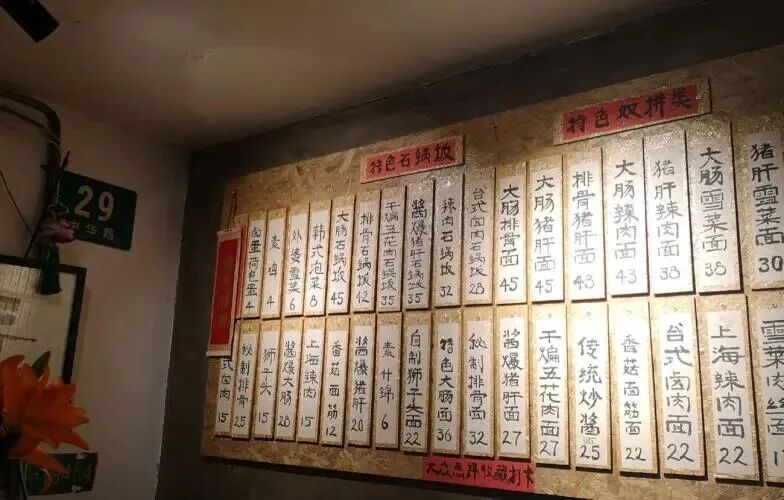 29
中华路
特色石锅饭
特色双拼类
卤蛋荷包蛋 4
素鸡 4
外婆雪菜 6
韩式泡菜 8
大肠石锅饭 45
排骨石锅饭 42
干煸五花肉石锅饭 35
酱爆猪肝石锅饭 35
辣肉石锅饭 32
台式卤肉石锅饭 28
大肠排骨面 45
大肠猪肝面 45
排骨猪肝面 43
大肠辣肉面 43
猪肝辣肉面 38
大肠雪菜面 38
猪肝雪菜面 30
式卤肉 15
秘制排骨 25
狮子头 15
酱爆大肠 28
上海辣肉 15
香菇面筋 12
酱爆猪肝 20
素什锦 6
自制狮子头面 22
特色大肠面 36
秘制排骨面 32
酱爆猪肝面 27
干煸五花肉面 27
传统炒酱 25
香菇面筋面 22
台式卤肉面 22
上海辣肉面 22
雪菜肉丝面
大众点评收藏打卡